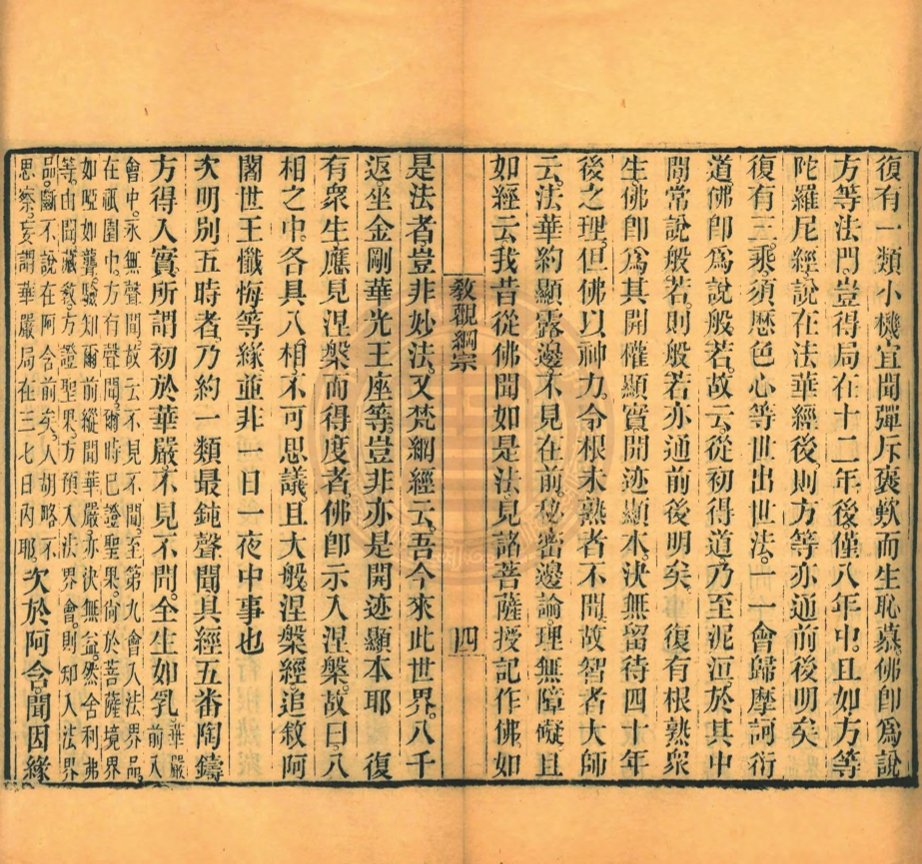 復有一類小機宜聞彈斥褒歎而生恥慕佛卽爲說
方等法門豈得局在十二年後僅八年中且如方等
陀羅尼經說在法華經後則方等亦通前後明矣
復有三乘須歷色心等世出世法一一會歸摩訶衍
道佛卽爲說般若故云從初得道乃至泥洹於其中
間常說般若則般若亦通前後明矣 復有根熟衆
生佛卽爲其開權顯實開迹顯本決無留待四十年
後之理但佛以神力令根未熟者不聞故智者大師
云法華約顯露邊不見在前祕密邊論理無障礙且
如經云我昔從佛聞如是法見諸菩薩授記作佛如
教觀綱宗 四
是法者豈非妙法又梵網經云吾今來此世界八千
返坐金剛華光王座等豈非亦是開迹顯本耶 復
有衆生應見涅槃而得度者佛卽示入涅槃故曰八
相之中各具八相不可思議且大般涅槃經追敘阿
闍世王懺悔等緣並非一日一夜中事也
次明別五時者乃約一類最鈍聲聞具經五番陶鑄
方得入實所謂初於華嚴不見不聞全生如乳 華嚴前八
會中永無聲聞故云不見不聞至第九會入法界品
在祇園中方有聲聞爾時已證聖果尚於菩薩境界
如啞如聾驗知爾前縱聞華嚴亦決無益然舍利弗
等由聞藏教方證聖果方預入法界會則知入法界
品斷不說在阿含前矣人胡略不
思察妄謂華嚴局在三七日內耶 次於阿含聞因緣